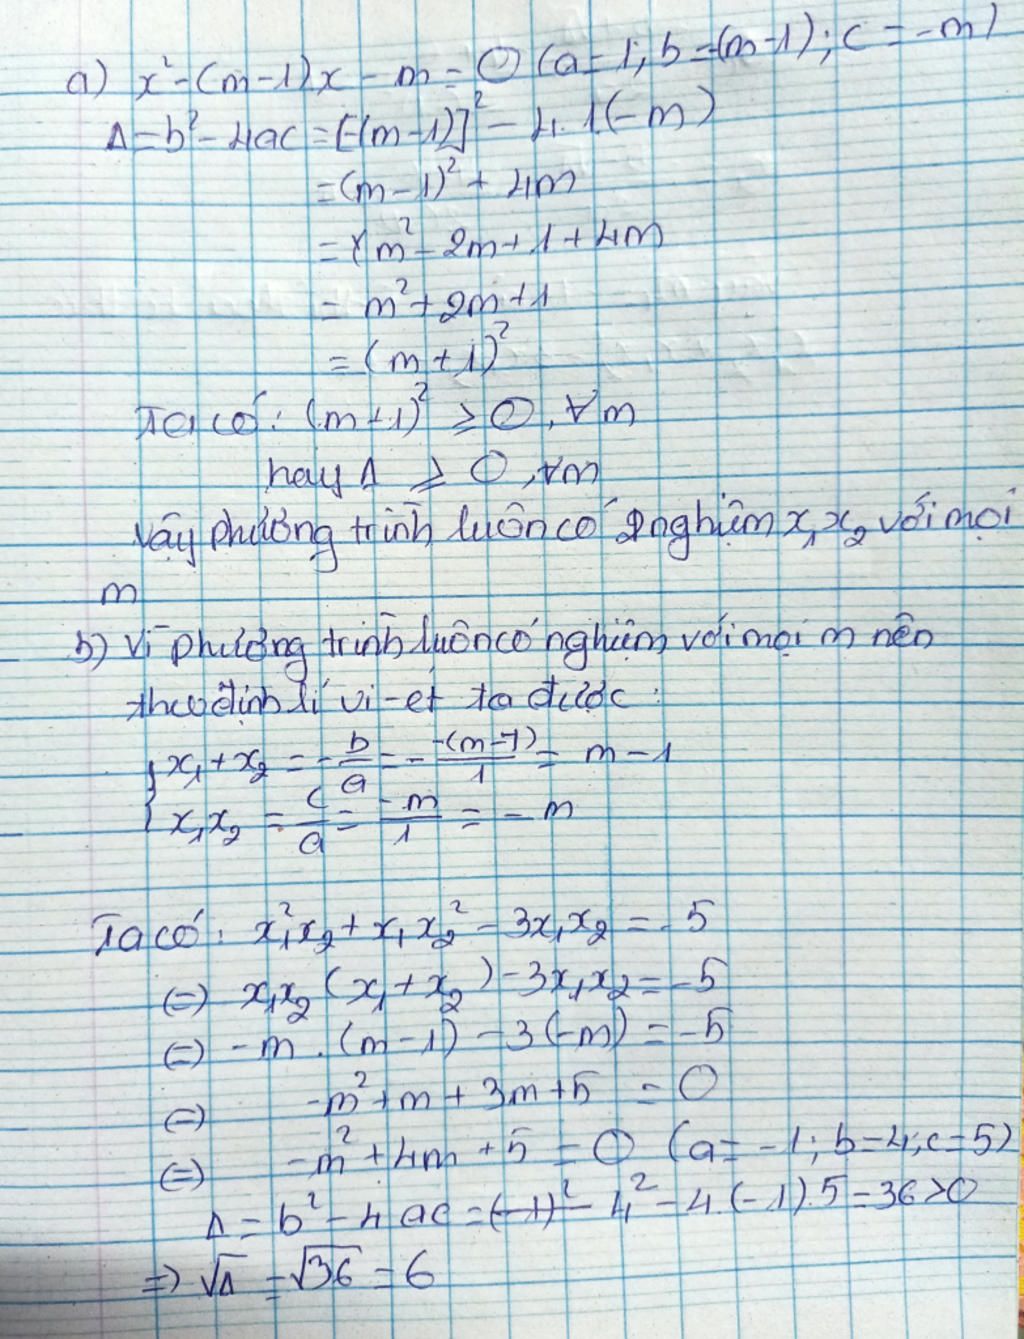 a) x² - (m-1)x - m = 0 (a=1; b=-(m-1); c=-m)
Δ = b² - 4ac = [-(m-1)]² - 4.1(-m)
= (m-1)² + 4m
= m² - 2m + 1 + 4m
= m² + 2m + 1
= (m+1)²
Ta có: (m+1)² ≥ 0, ∀m
hay Δ ≥ 0, ∀m
Vậy phương trình luôn có 2 nghiệm x₁ x₂ với mọi
m
b) Vì phương trình luôn có nghiệm với mọi m nên
theo định lí vi-ét ta được:
{ x₁ + x₂ = -b/a = -(-(m-1))/1 = m - 1
x₁x₂ = c/a = -m/1 = -m
Ta có: x₁²x₂ + x₁x₂² - 3x₁x₂ = -5
(=) x₁x₂(x₁ + x₂) - 3x₁x₂ = -5
(=) -m.(m-1) - 3(-m) = -5
(=) -m² + m + 3m + 5 = 0
(=) -m² + 4m + 5 = 0 (a=-1; b=4; c=5)
Δ = b² - 4ac = 4² - 4.(-1).5 = 36 > 0
=> √Δ = √36 = 6